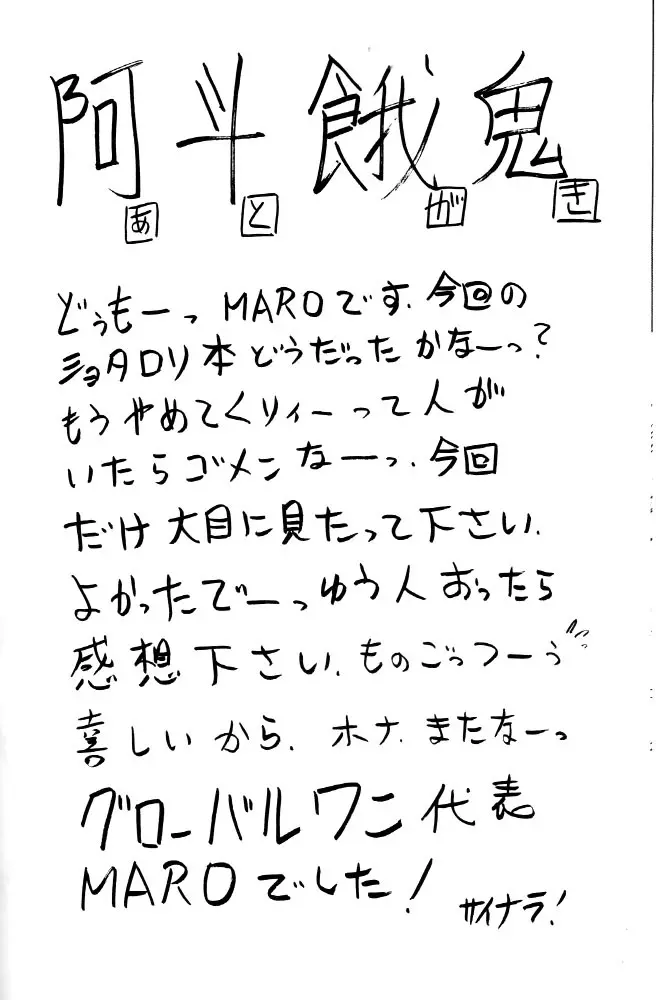 阿斗餓鬼
あとがき
どぅもーっ MAROです.今回の
ショタロリ本どうだったかなーっ?
もうやめてくりィーって人が
いたらゴメンなーっ.今回
だけ大目に見たって下さい.
よかったでーっゆう人おったら
感想下さい.ものごっつーぅ
喜しいから.ホナ.またなーっ
グローバルワン代表
MAROでした!
サイナラ!